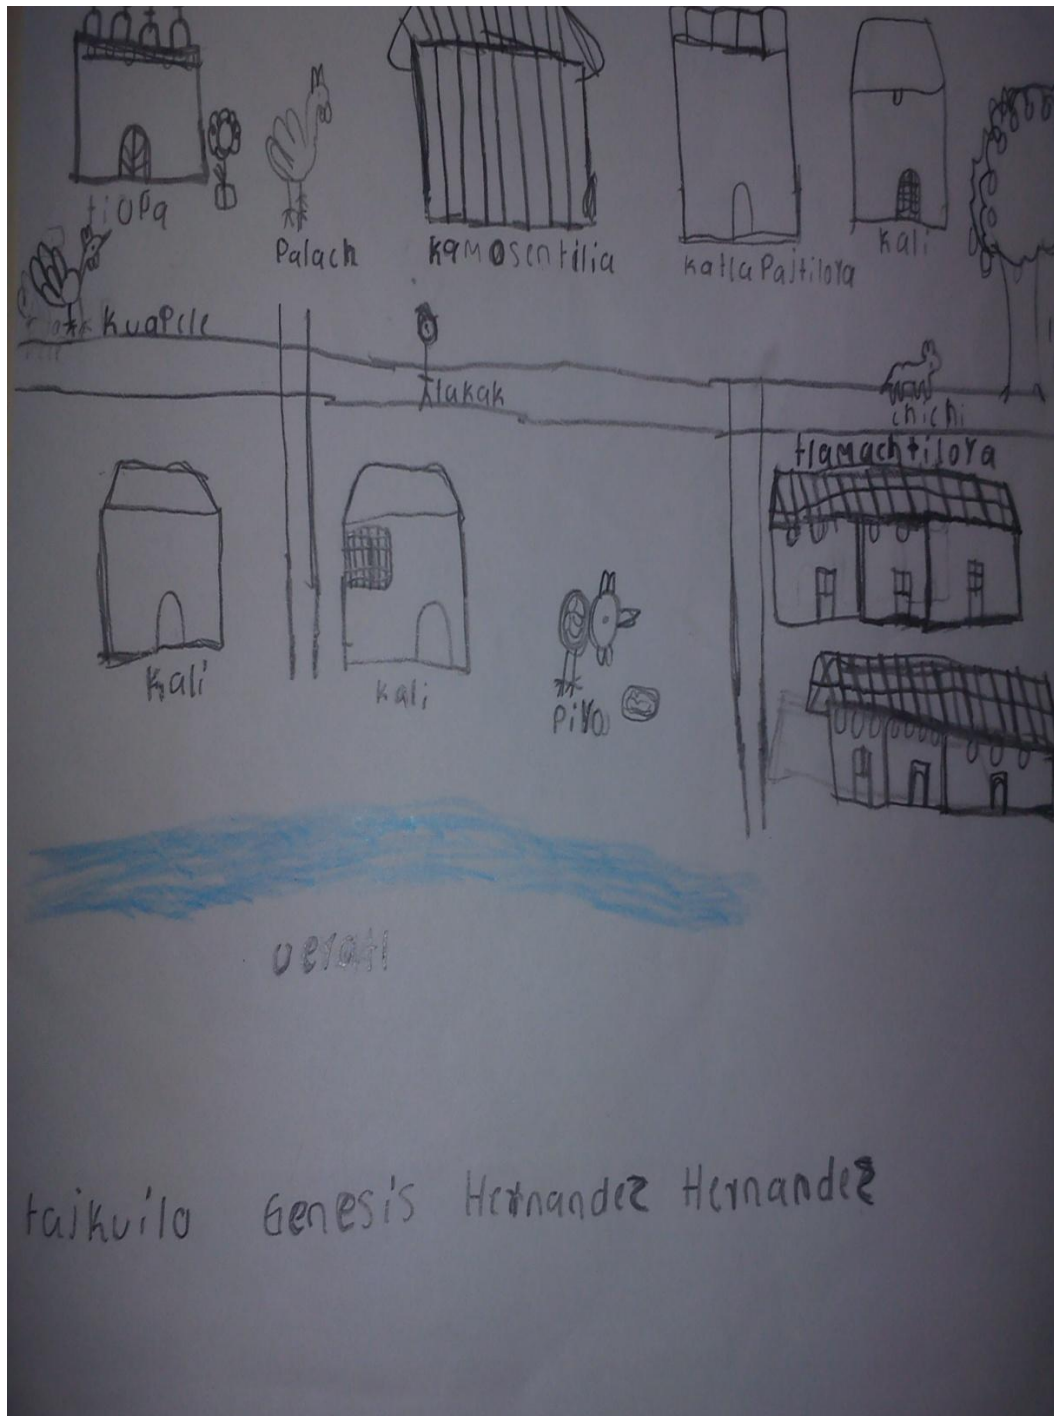 tiopa
Palach
kamosentilia
katlaPajtiloya
kali
kuapele
tlakak
chichi
tlamachtiloya
kali
kali
Piyo
veyatl
tajkuilo Genesis Hernandez Hernandez